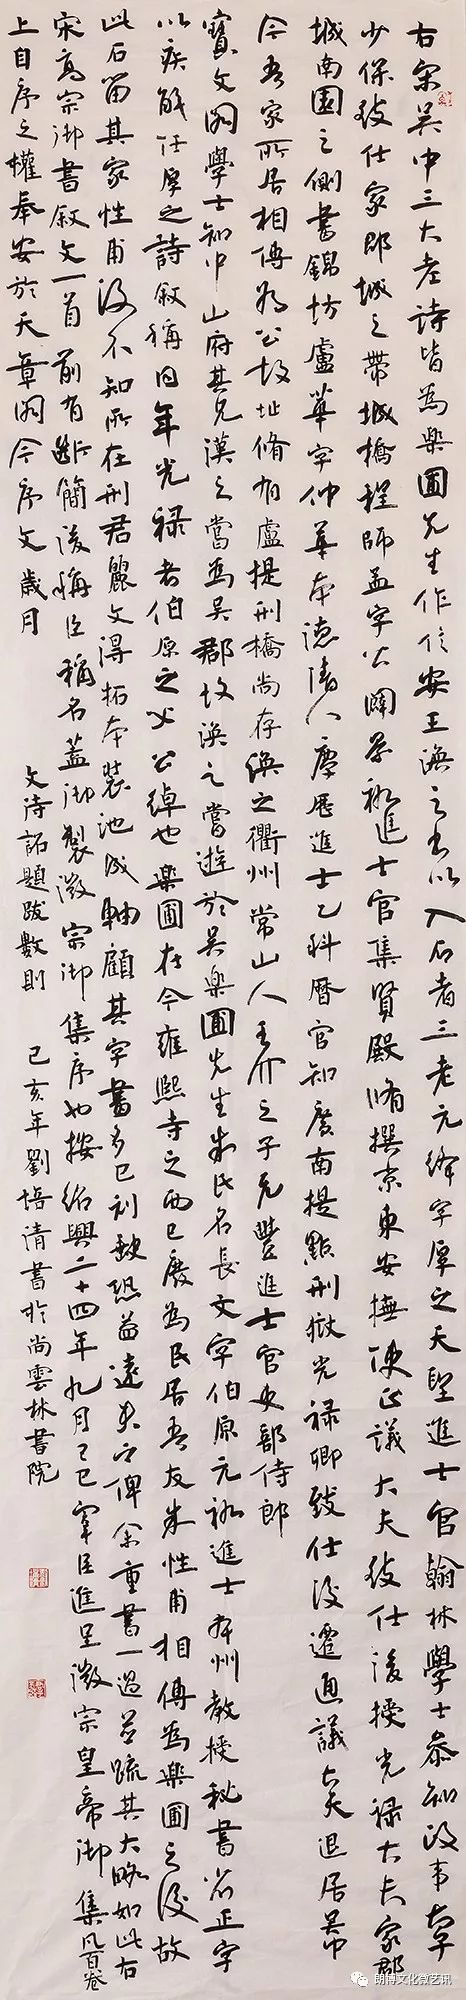 右宋吴中三大老詩皆為樂圃先生作信安王渙之書以入石者三老元絳字厚之天聖進士官翰林學士叅知政事太子
少保致仕家郡城之帶城橋程師孟字公闢景祐進士官集賢殿脩撰京東安撫使正議大夫致仕後授光禄大夫家郡
城南園之側書錦坊盧革字仲革本德清人慶歷進士乙科曆官知廣南提點刑獄光禄卿致仕後遷通議大夫退居吴中
今吾家所居相傳為公故址脩有盧提刑橋尚存渙之衢州常山人王介之子元豐進士官吏部侍郎
寳文閣學士知中山府其兄漢之嘗為吴郡故渙之嘗遊於吴樂圃先生朱氏名長文字伯原元祐進士本州教授秘書省正字
以疾解任厚之詩敘稱同年光禄者伯原之父公綽也樂圃在今雍熙寺之西已廢為民居吾友朱性甫相傳為樂圃之後故
此石留其家性甫没不知所在刑君麗文得拓本装池成軸顧其字畫多已刓缺恐益遠失之俾余重書一過并疏其大略如此右
宋髙宗御書敘文一首前有斷簡後稱臣稱名蓋御製徽宗御集序也按紹興二十四年九月己巳宰臣進呈徽宗皇帝御集凡百卷
上自序之權奉安於天章閣今序文歲月
文待詔題跋數則 己亥年劉培清書於尚雲林書院
朗博文化微艺讯